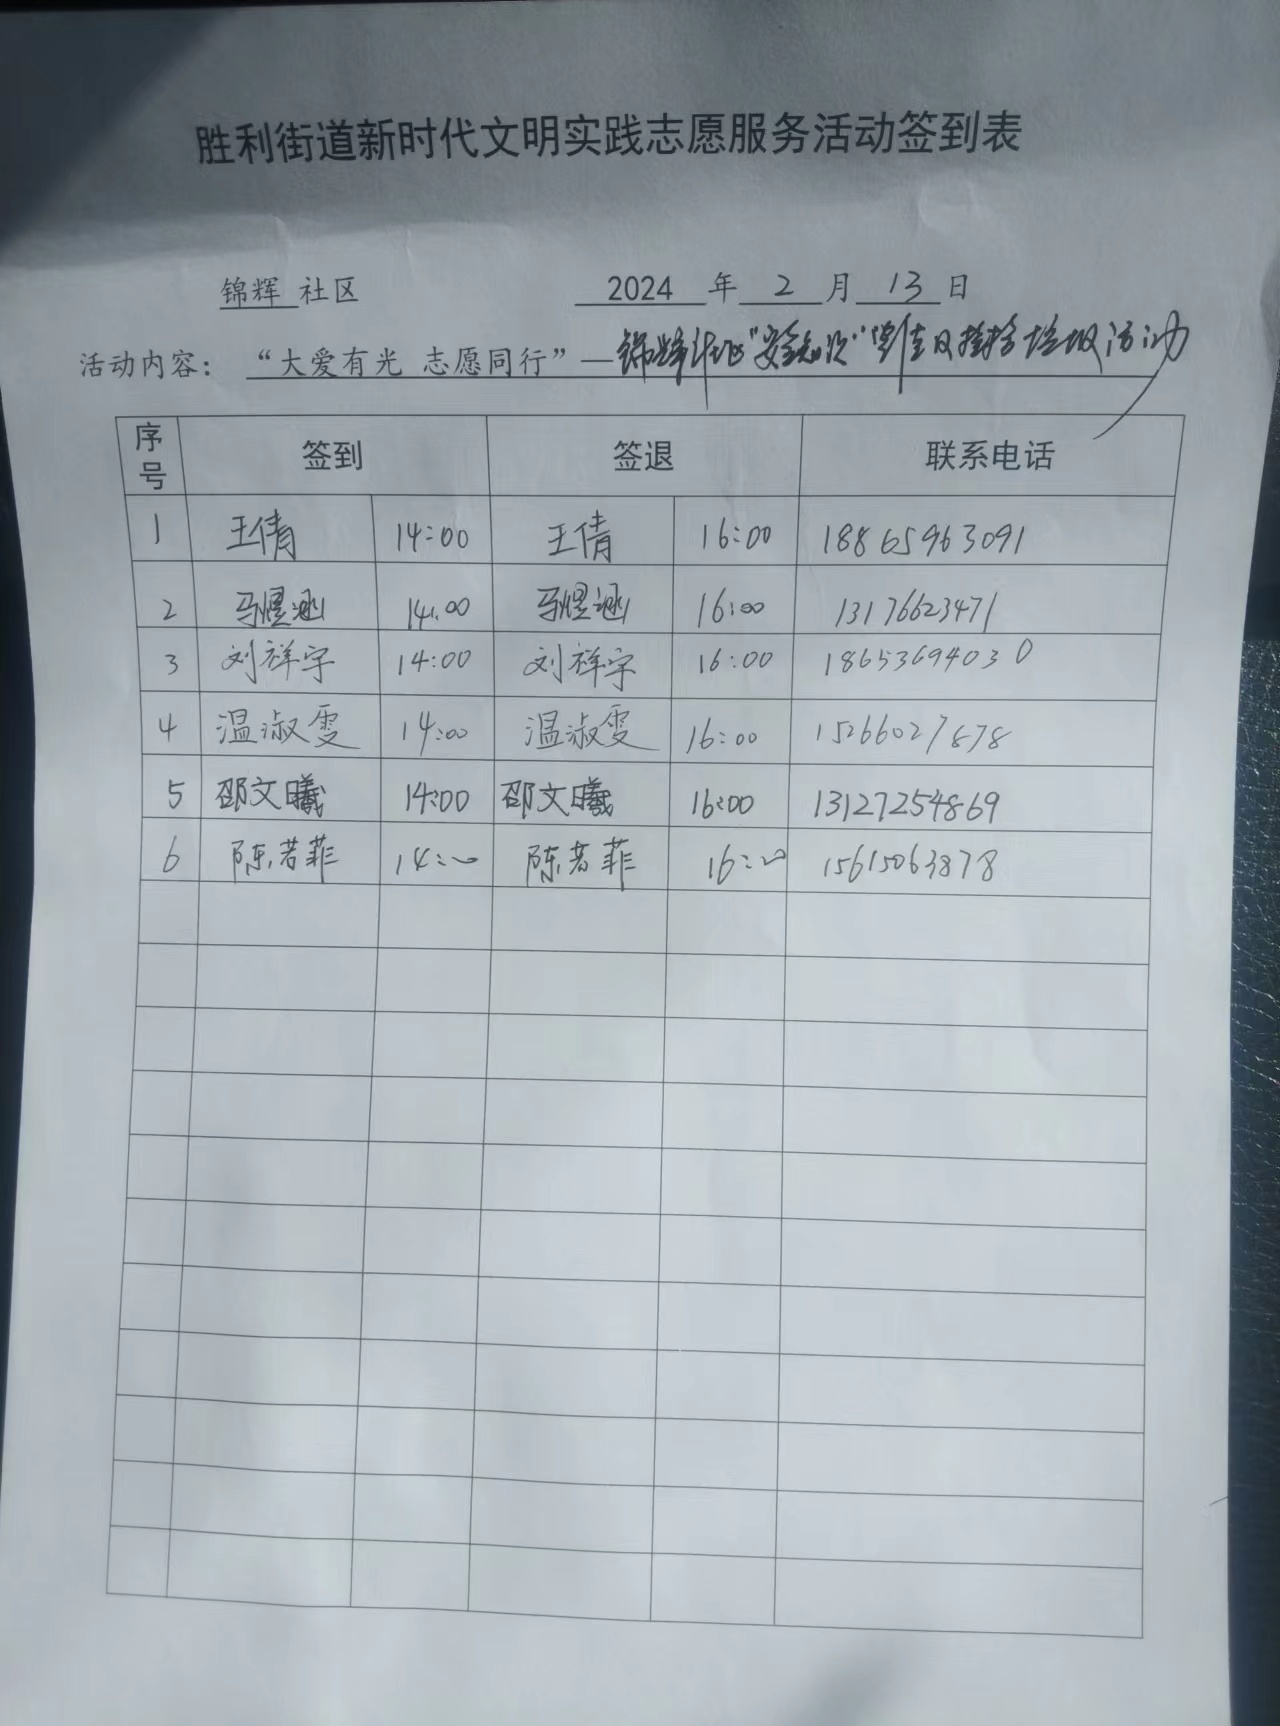 胜利街道新时代文明实践志愿服务活动签到表
锦辉 社区 2024 年 2 月 13 日
活动内容： “大爱有光 志愿同行”—锦辉社区“安全知识”宣传及捡拾垃圾活动
序号 签到 签退 联系电话
1 王倩 14:00 王倩 16:00 18865963091
2 马煜涵 14:00 马煜涵 16:00 13176623471
3 刘祥宇 14:00 刘祥宇 16:00 18653694030
4 温淑雯 14:00 温淑雯 16:00 15266027878
5 邵文曦 14:00 邵文曦 16:00 13127254869
6 陈若菲 14:00 陈若菲 16:00 15615063878